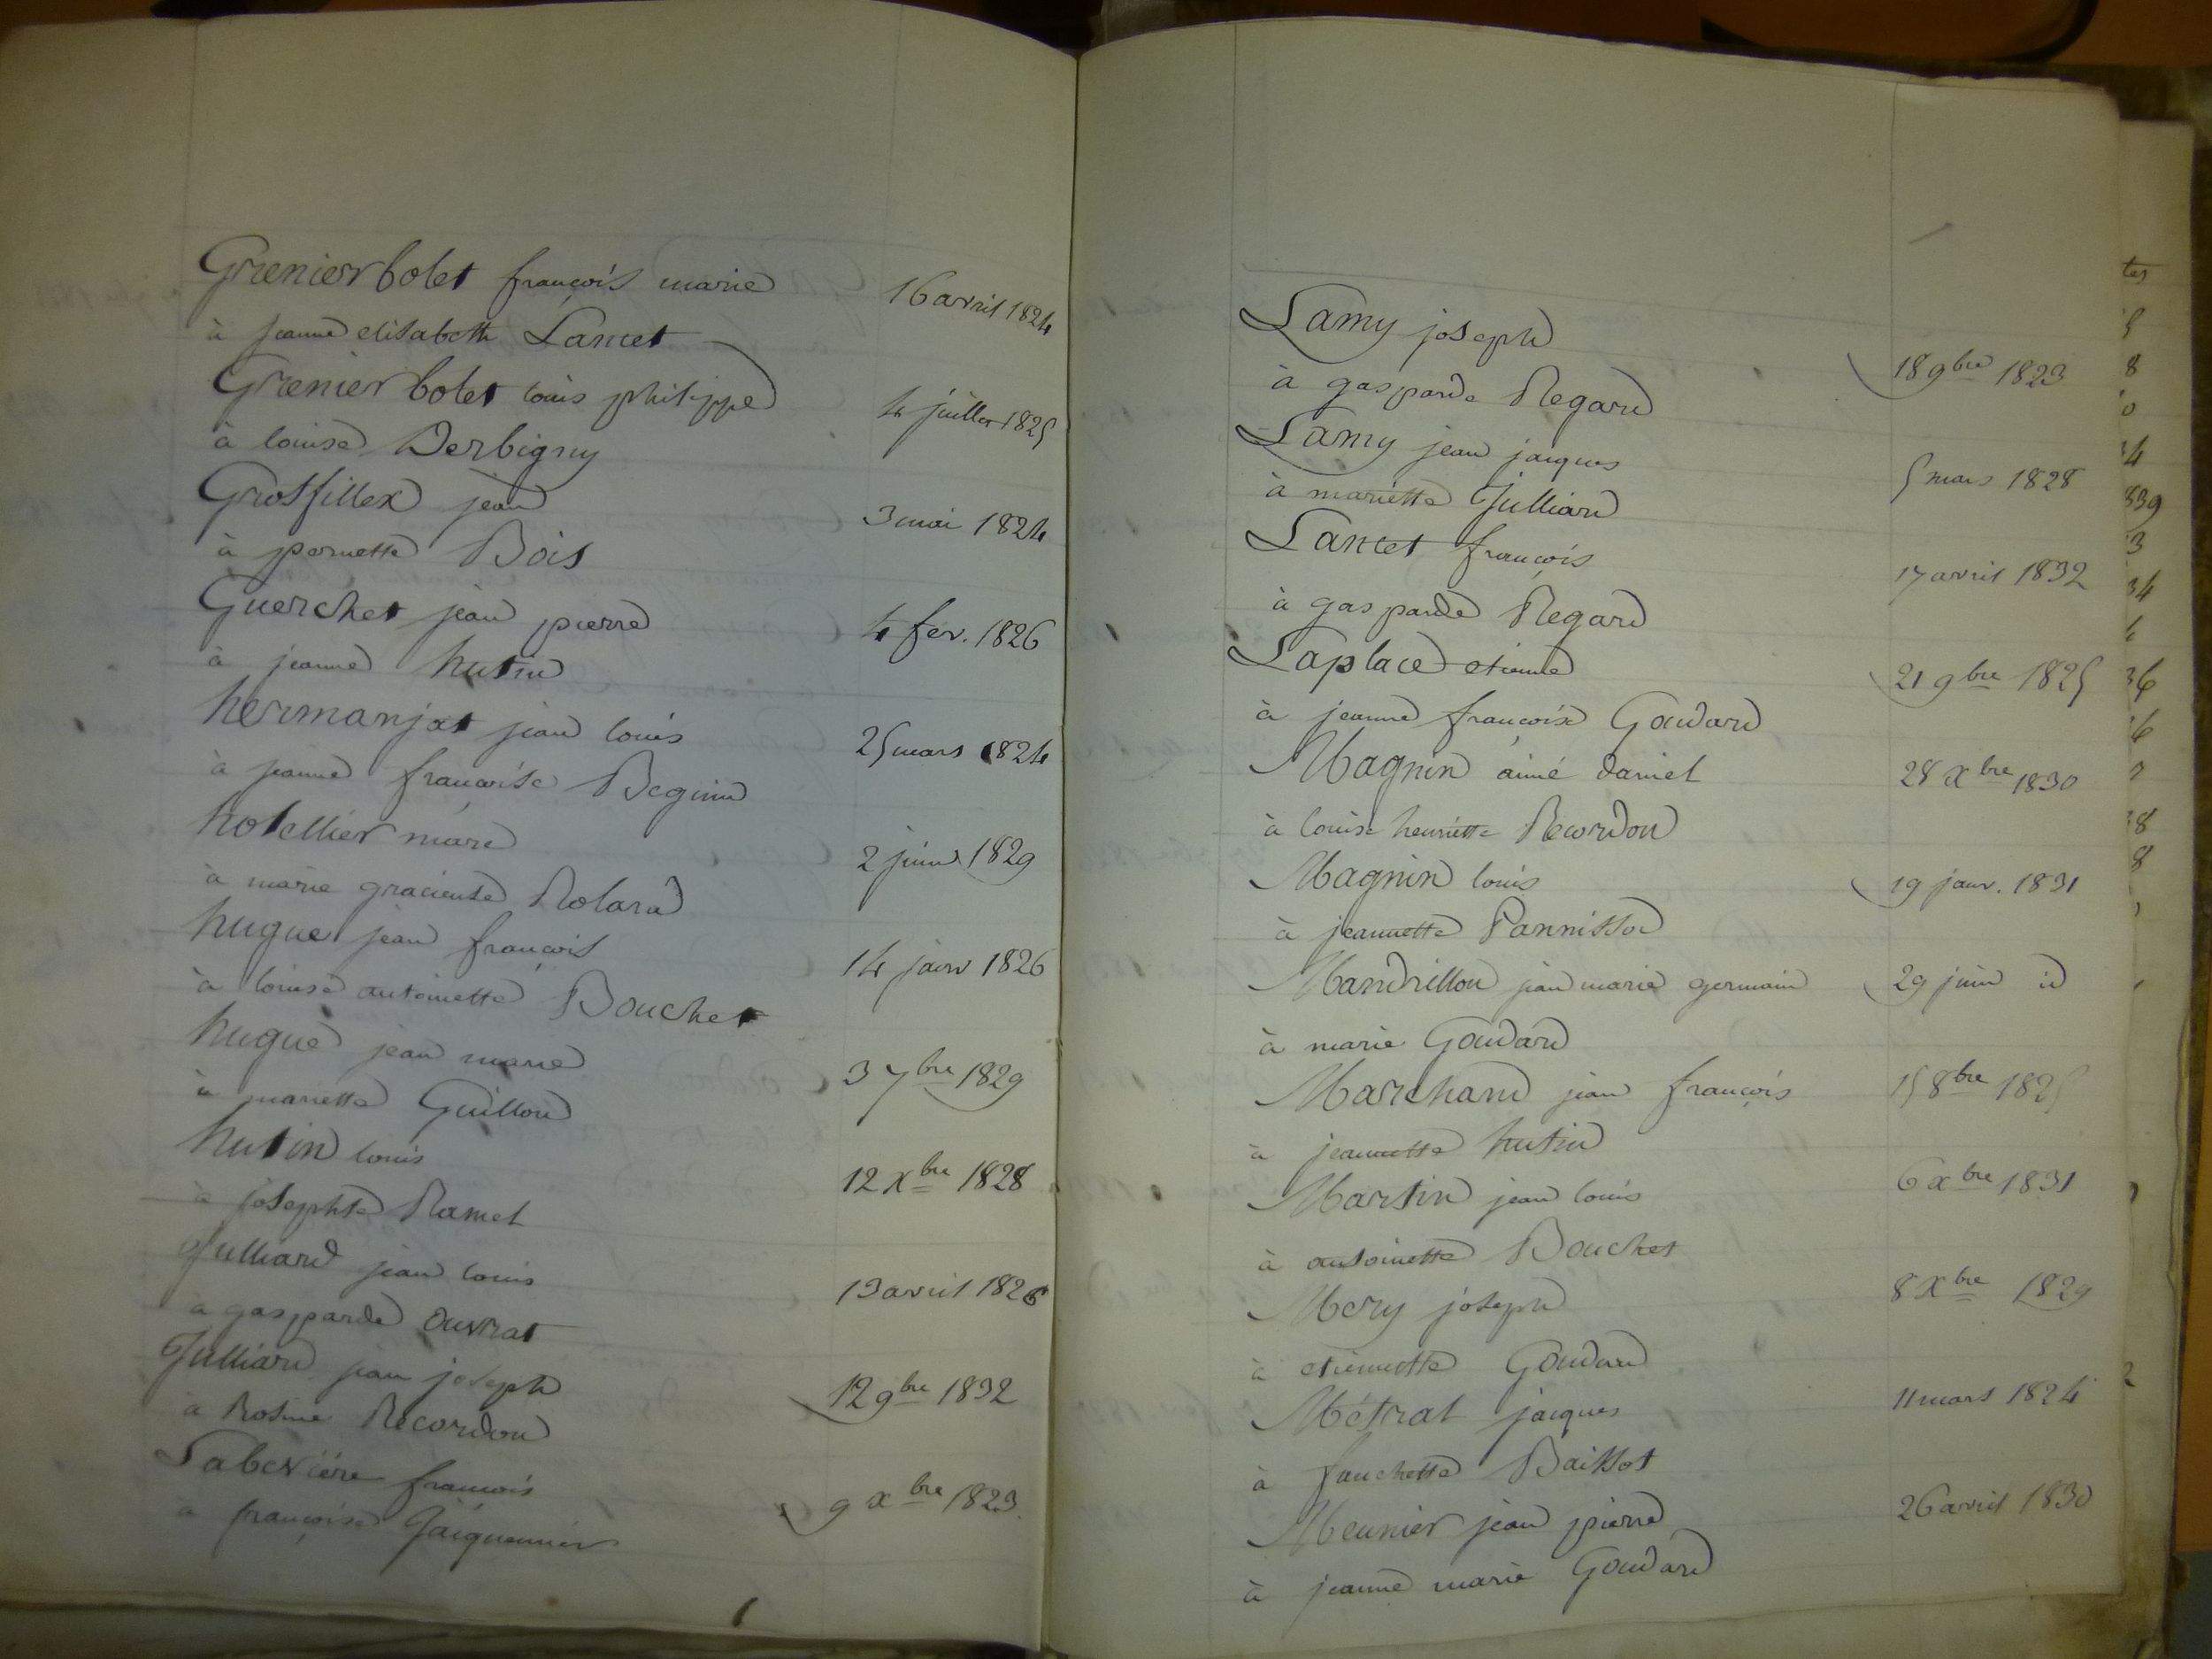 Grenier bolet françois marie 16 avril 1824
à jeanne elisabeth Lancet
Grenier bolet louis philippe 4 juillet 1825
à louise Derbigny
Grosfillex jean 3 mai 1824
à pernette Bois
Guerchet jean pierre 4 fév. 1826
à jeanne hutin
hermanjat jean louis 25 mars 1824
à jeanne françoise Beginin
hotellier marc 2 juin 1829
à marie gracieuse Roland
hugue jean françois 14 janv 1826
à louise antoinette Bouchet
hugue jean marie 3 7bre 1829
à mariette Guillon
hutin louis 12 Xbre 1828
à josephte Ramel
Julliard jean louis 13 avril 1826
à gasparde ouvrat
Julliard jean joseph 12 9bre 1832
à Rosine Recordon
Labevière françois 9 Xbre 1823
à françoise
Lamy joseph 18 9bre 1823
à gasparde Regard
Lamy jean jacques 5 mars 1828
à mariette Julliard
Lancet françois 17 avril 1832
à gasparde Regard
Laplace etienne 21 9bre 1825
à jeanne françoise Goudard
Magnin aimé daniel 28 Xbre 1830
à louise henriette Recordon
Magnin louis 19 janv. 1831
à jeannette Pannissod
Mandrillon jean marie germain 29 juin id
à marie Goudard
Marchand jean françois 15 8bre 1825
à jeannette hutin
Martin jean louis 6 Xbre 1831
à antoinette Bouchet
Mery joseph 8 Xbre 1829
à etiennette Goudard
Métral jacques 11 mars 1824
à fanchette Baissot
Meunier jean pierre 26 avril 1830
à jeanne marie Goudard